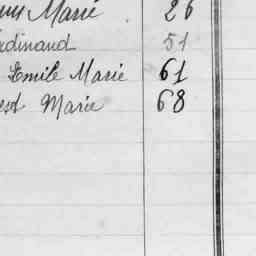 Marie 26
rdinand 51
Emile Marie 61
est Marie 68